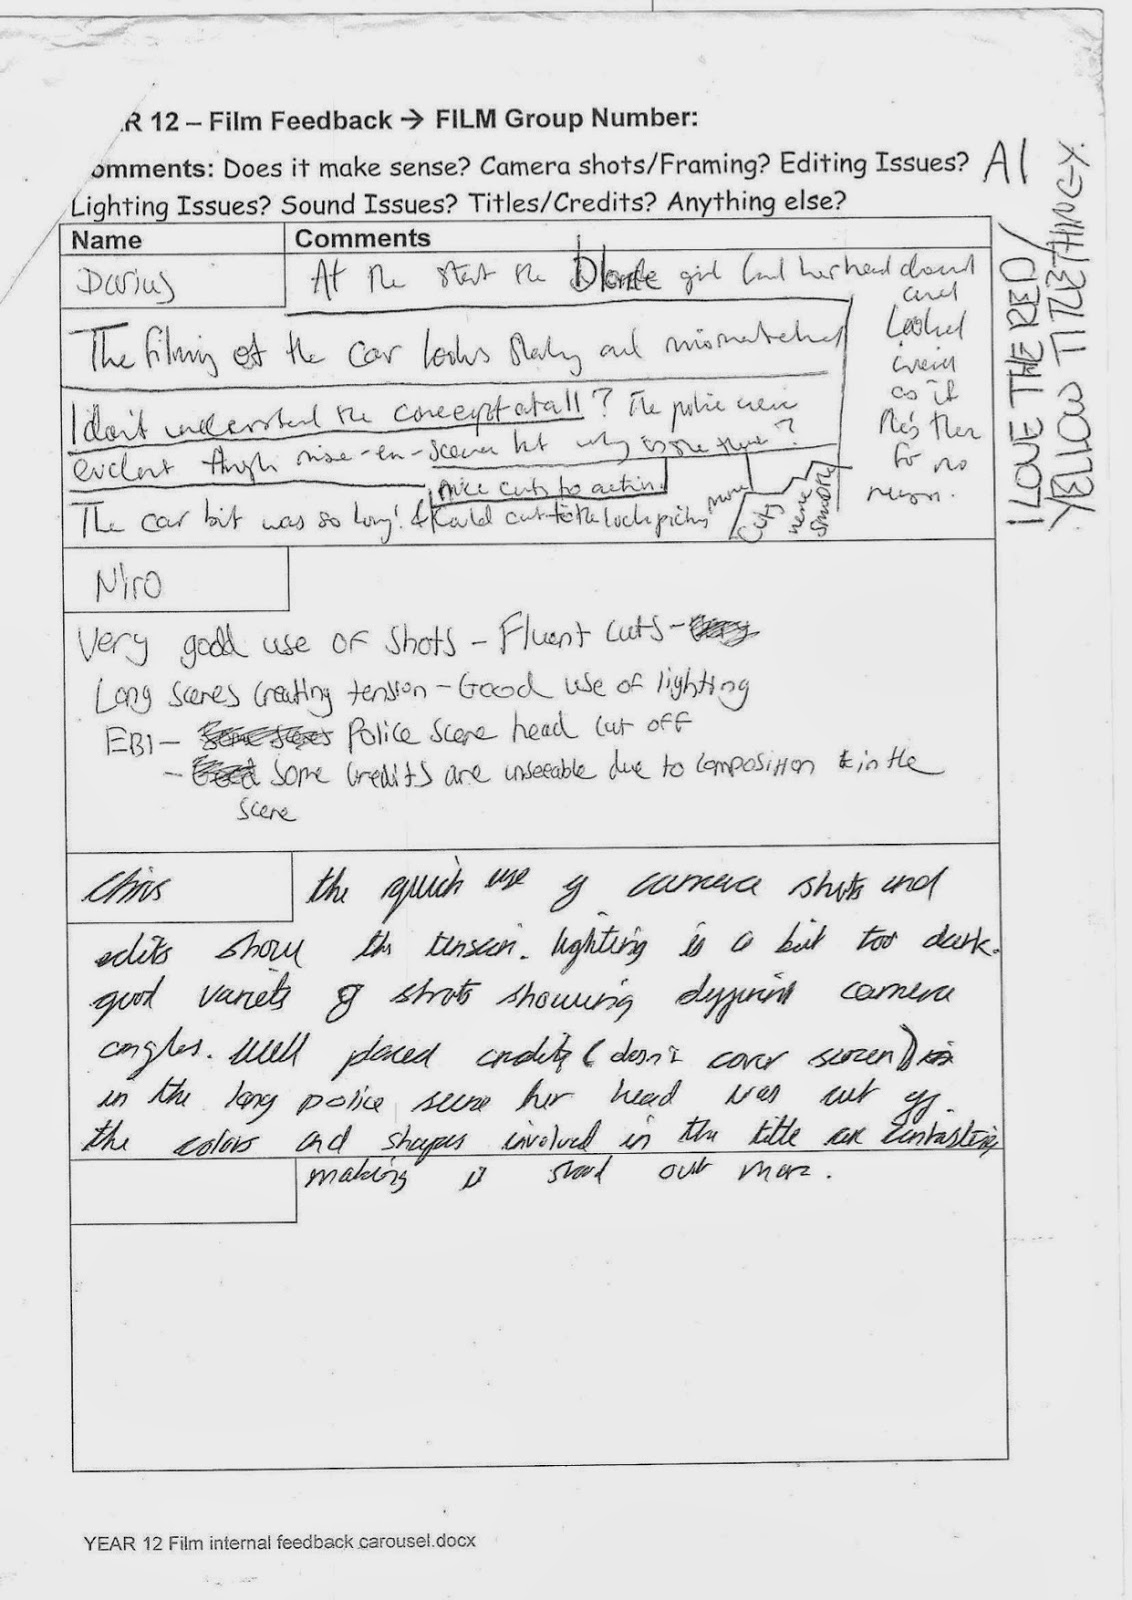 R 12 – Film Feedback → FILM Group Number:
omments: Does it make sense? Camera shots/Framing? Editing Issues?
Lighting Issues? Sound Issues? Titles/Credits? Anything else?
A1
I LOVE THE RED/
YELLOW TITLE THINGY.
Name Comments
Darius
At the start the Blonde girl had her head down
and
Looked
weird
as if
she's there
for no
reason.
The filming of the car looks shaky and mismatched
I don't understand the concept at all? The police were
evident through mise-en-scene but why is she there?
nice cuts to action.
The car bit was so long! & could cut to the lock picking more
cuts
were
smooth
Niro
Very good use of shots – Fluent cuts –
Long scenes creating tension – Good use of lighting
EBI – Police scene head cut off
– some credits are unseeable due to composition in the
scene
Chris
the quick use of camera shots and
edits show the tension. lighting is a bit too dark.
good variets of shots showing different camera
angles. Well placed credits (don't cover screen)
in the long police scene her head was cut off.
the colors and shapes involved in the title are contrasting
making it stand out more.
YEAR 12 Film internal feedback carousel.docx